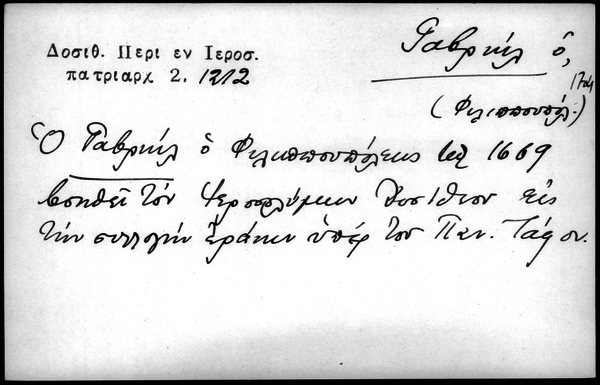 Δοσιθ. Περι εν Ιεροσ.
πατριαρχ 2. 1212
Γαβριήλ ὁ,
17ος
(Φιλιππουπόλ.)
Ὁ Γαβριήλ ὁ Φιλιππουπόλεως τῷ 1669
βοηθεῖ τὸν Ἱεροσολύμων Δοσίθεον εἰς
τὴν συλλογὴν ἐράνων ὑπὲρ τοῦ Παν. Τάφου.